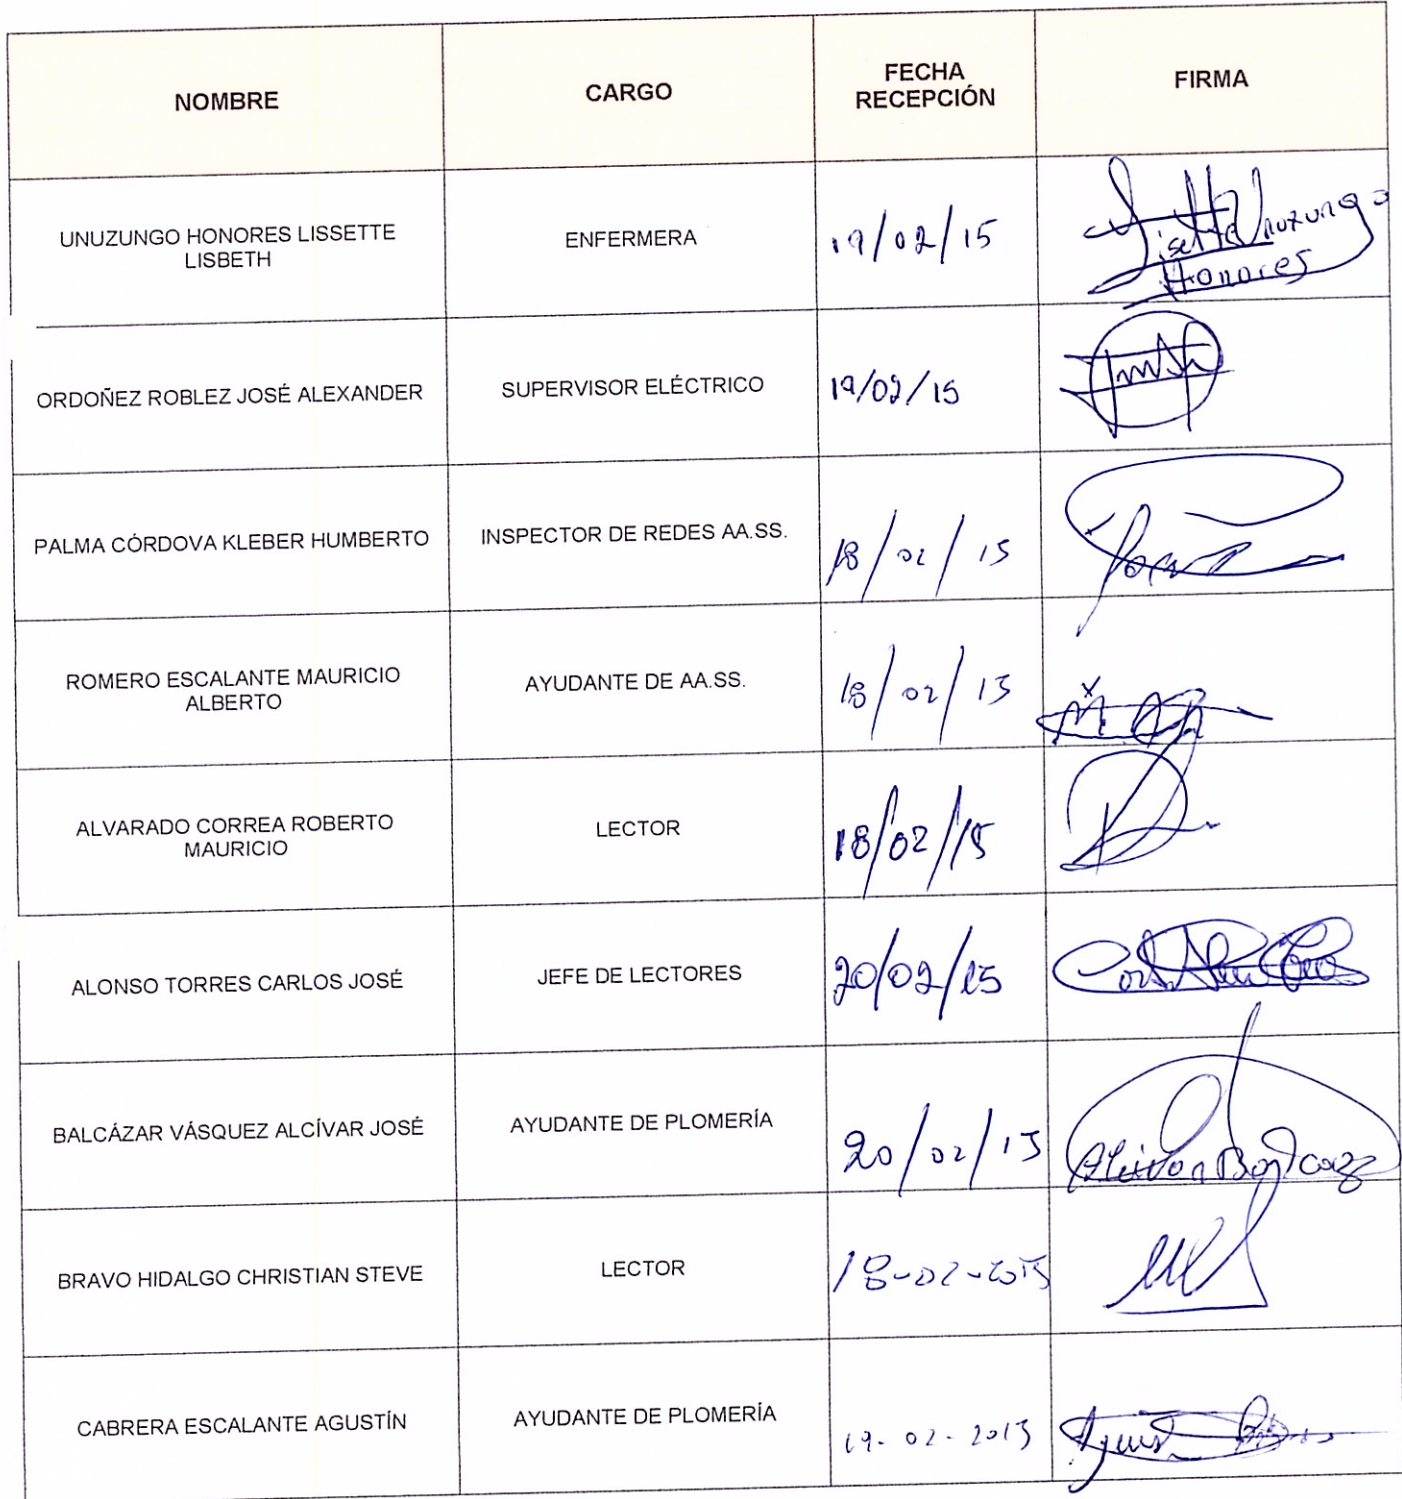 NOMBRE
CARGO
FECHA
RECEPCIÓN
FIRMA
UNUZUNGO HONORES LISSETTE
LISBETH
ENFERMERA
19/02/15
Lissette Unuzungo
Honores
ORDOÑEZ ROBLEZ JOSÉ ALEXANDER
SUPERVISOR ELÉCTRICO
19/02/15
PALMA CÓRDOVA KLEBER HUMBERTO
INSPECTOR DE REDES AA.SS.
18/02/15
ROMERO ESCALANTE MAURICIO
ALBERTO
AYUDANTE DE AA.SS.
18/02/15
ALVARADO CORREA ROBERTO
MAURICIO
LECTOR
18/02/15
ALONSO TORRES CARLOS JOSÉ
JEFE DE LECTORES
20/02/15
BALCÁZAR VÁSQUEZ ALCÍVAR JOSÉ
AYUDANTE DE PLOMERÍA
20/02/15
Alcivar Balcazar
BRAVO HIDALGO CHRISTIAN STEVE
LECTOR
18-02-2015
CABRERA ESCALANTE AGUSTÍN
AYUDANTE DE PLOMERÍA
19-02-2015